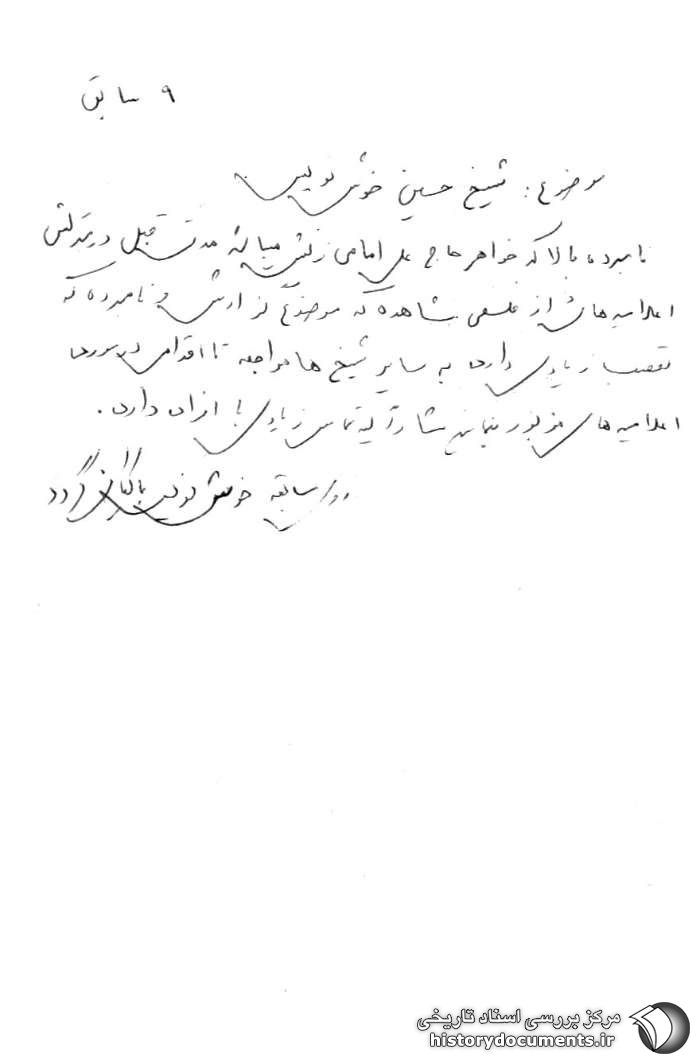 ۹ سابق
موضوع: شیخ حسین خوش نویس
نامبرده بالا که خواهر حاج علی امامی زنش میباشد مدت قبل در
اعلامیه هائی از فلسفی مشاهده که موضوع گزارش و نامبرده که
تعصب زیادی دارد به سایر شیخ ها مراجعه تا اقدامی در مورد
اعلامیه های مزبور بنمایند مشارالیه تماس زیادی با افراد دارد.
در سابقه خوش نویس بایگانی گردد
مرکز بررسی اسناد تاریخی
historydocuments.ir